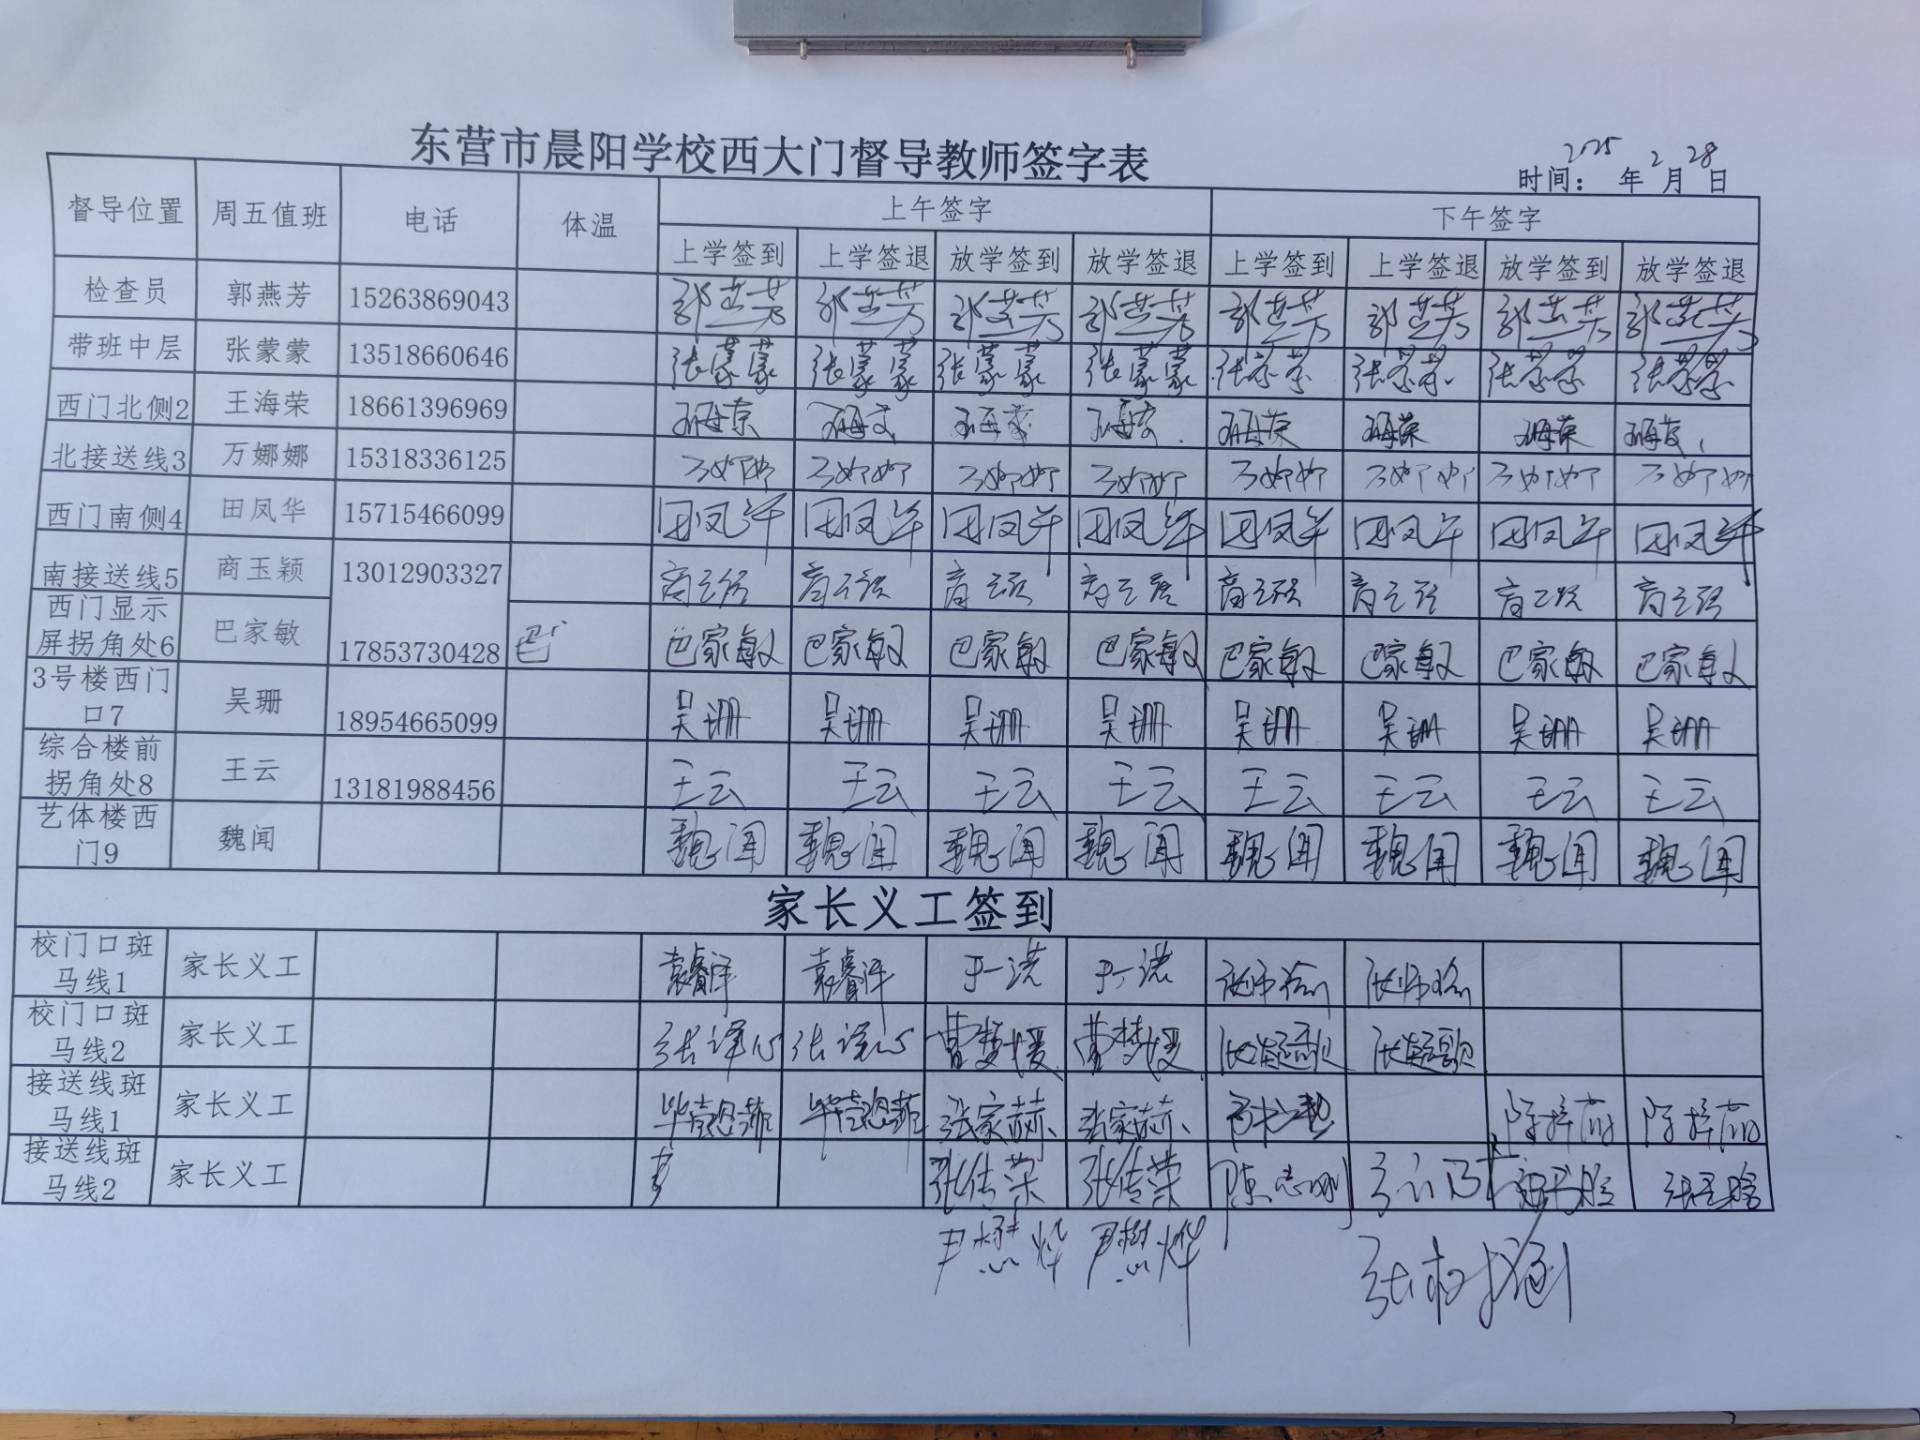 东营市晨阳学校西大门督导教师签字表
时间： 2025 年 2 月 28 日
督导位置 周五值班 电话 体温 上午签字 下午签字
上学签到 上学签退 放学签到 放学签退 上学签到 上学签退 放学签到 放学签退
检查员 郭燕芳 15263869043 郭燕芳 郭燕芳 郭燕芳 郭燕芳 郭燕芳 郭燕芳 郭燕芳 郭燕芳
带班中层 张蒙蒙 13518660646 张蒙蒙 张蒙蒙 张蒙蒙 张蒙蒙 张蒙蒙 张蒙蒙 张蒙蒙 张蒙蒙
西门北侧2 王海荣 18661396969 王海荣 王海荣 王海荣 王海荣 王海荣 王海荣 王海荣 王海荣
北接送线3 万娜娜 15318336125 万娜娜 万娜娜 万娜娜 万娜娜 万娜娜 万娜娜 万娜娜 万娜娜
西门南侧4 田凤华 15715466099 田凤华 田凤华 田凤华 田凤华 田凤华 田凤华 田凤华 田凤华
南接送线5 商玉颖 13012903327 商玉颖 商玉颖 商玉颖 商玉颖 商玉颖 商玉颖 商玉颖 商玉颖
西门显示
屏拐角处6 巴家敏 17853730428 巴 巴家敏 巴家敏 巴家敏 巴家敏 巴家敏 巴家敏 巴家敏 巴家敏
3号楼西门
口7 吴珊 18954665099 吴珊 吴珊 吴珊 吴珊 吴珊 吴珊 吴珊 吴珊
综合楼前
拐角处8 王云 13181988456 王云 王云 王云 王云 王云 王云 王云 王云
艺体楼西
门9 魏闻 魏闻 魏闻 魏闻 魏闻 魏闻 魏闻 魏闻 魏闻
家长义工签到
校门口斑
马线1 家长义工 袁睿泽 袁睿泽 于一诺 于一诺
校门口斑
马线2 家长义工 张译心 张译心 曹梦媛 曹梦媛 张凝歌 张凝歌
接送线斑
马线1 家长义工 张家赫 张家赫
接送线斑
马线2 家长义工 张传荣 张传荣 陈志刚
尹懋烨 尹懋烨